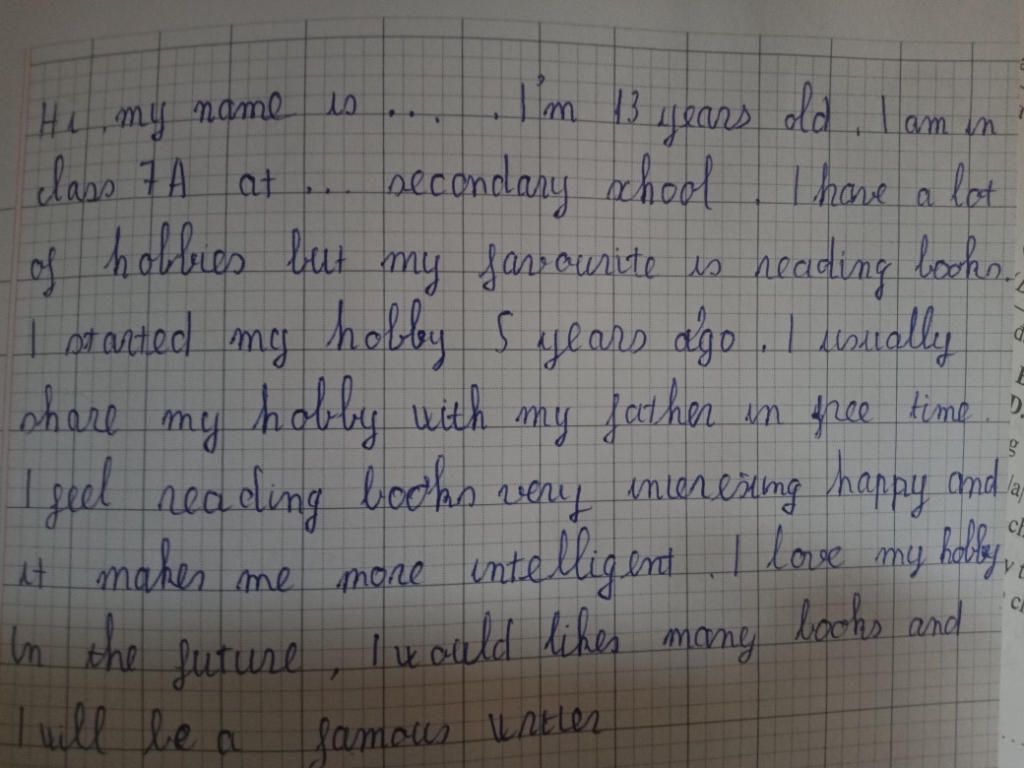 Hi, my name is .... . I'm 13 years old. I am in
class 7A at ... secondary school. I have a lot
of hobbies but my favourite is reading books.
I started my hobby 5 years ago. I usually
share my hobby with my father in free time.
I feel reading books very interesing happy and
it makes me more intelligent. I love my hobby
In the future, I would likes many books and
I will be a famous writer